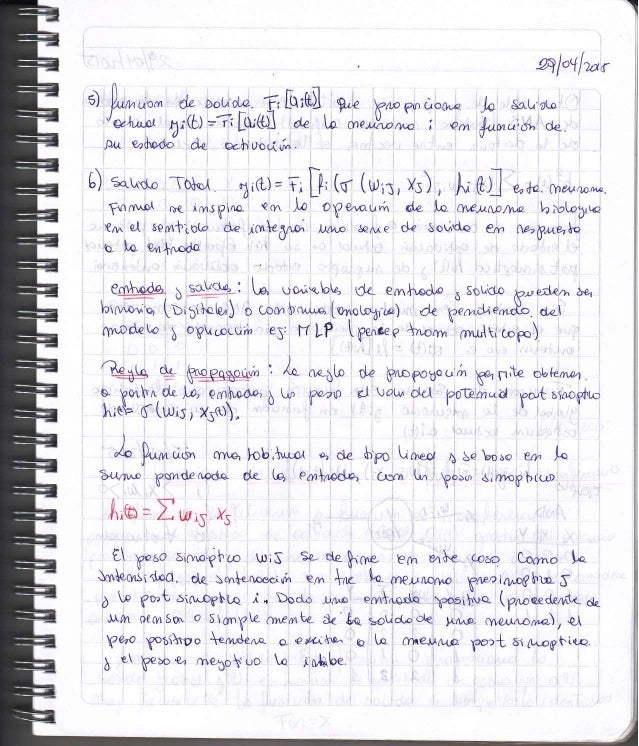 29/04/2015
5) función de salida. Fi[ai(t)] que proporciona la salida
actual yi(t) = Fi[ai(t)] de la neurona i en función de.
su estado de activación.
6) Salida Total yi(t) = Fi[fi(σ(wij, xj), hi(t)] esta neurona.
Formal se inspira en la operaun de la neurona biologica
en el sentido de integrar una serie de salida en respuesta
a la entrada
entradas y salidas: las variables de entrada y salida pueden ser
binaria (Digitales) o continua (analogica) dependiendo del
modelo y aplicación ej: MLP (perceptron multicapa)
Regla de propagación: La regla de propagación permite obtener.
a partir de las entradas y los pesos el valor del potencial post sinaptico
hi(t) = σ(wij, xj(t)).
La función mas habitual es de tipo lineal y se basa en la
suma ponderada de las entradas con los pesos sinapticos
hi(t) = Σ wij xj
El peso sinaptico wij se define en este caso como la
Intensidad. de interacción entre la neurona presinaptica j
y la post sinaptica i. Dada una entrada positiva (procedente de
un sensor o simple mente de la salida de una neurona), el
peso positivo tendera a excitar a la neurona post sinaptica.
y el peso es negativo la inhibe.